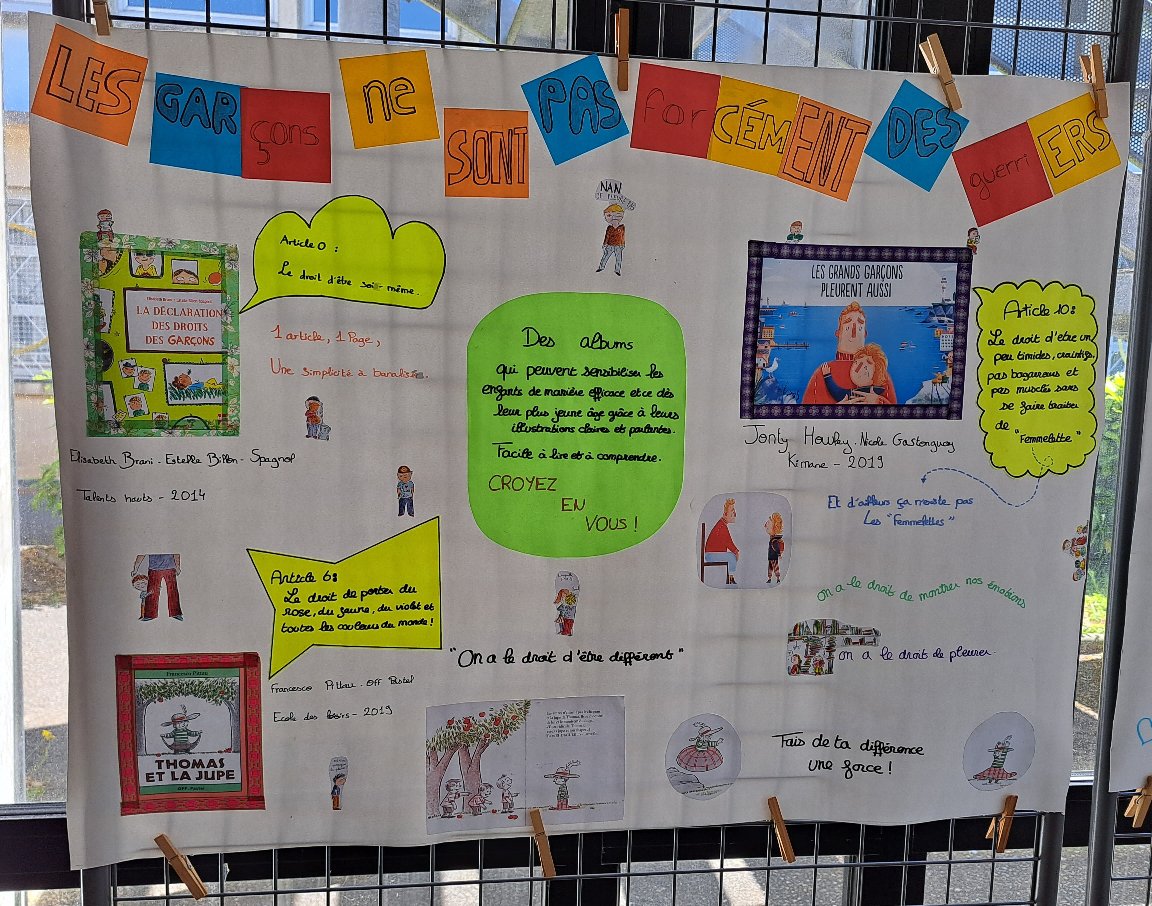 LES GARçons ne SONT PAS forCÉMENT DES guerriERS
NAN
JE PLEURE PAS
Article 0 :
Le droit d'être soi-même.
1 article, 1 Page,
Une simplicité à banaliser.
LA DÉCLARATION
DES DROITS
DES GARÇONS
Elisabeth Brami - Estelle Billon - Spagnol
Talents hauts - 2014
Des albums
qui peuvent sensibiliser les
enfants de manière efficace et ce dès
leur plus jeune âge grâce à leurs
illustrations claires et parlantes.
Facile à lire et à comprendre.
CROYEZ
EN
VOUS !
LES GRANDS GARÇONS
PLEURENT AUSSI
Jonty Howley - Nicole Gastonguay
Kimane - 2019
Article 10:
Le droit d'être un
peu timides, craintifs,
pas bagarreurs et
pas musclés sans
se faire traiter
de "Femmelette"
Et d'ailleurs ça n'existe pas
les "Femmelettes"
on a le droit de montrer nos émotions
on a le droit de pleurer.
Article 6:
Le droit de porter du
rose, du jaune, du violet et
toutes les couleurs du monde !
"On a le droit d'être différent"
Francesco Pittau - OFF Pastel
Ecole des loisirs - 2019
Francesco Pittau
THOMAS
ET LA JUPE
OFF-Pastel
Fais de ta différence
une force !